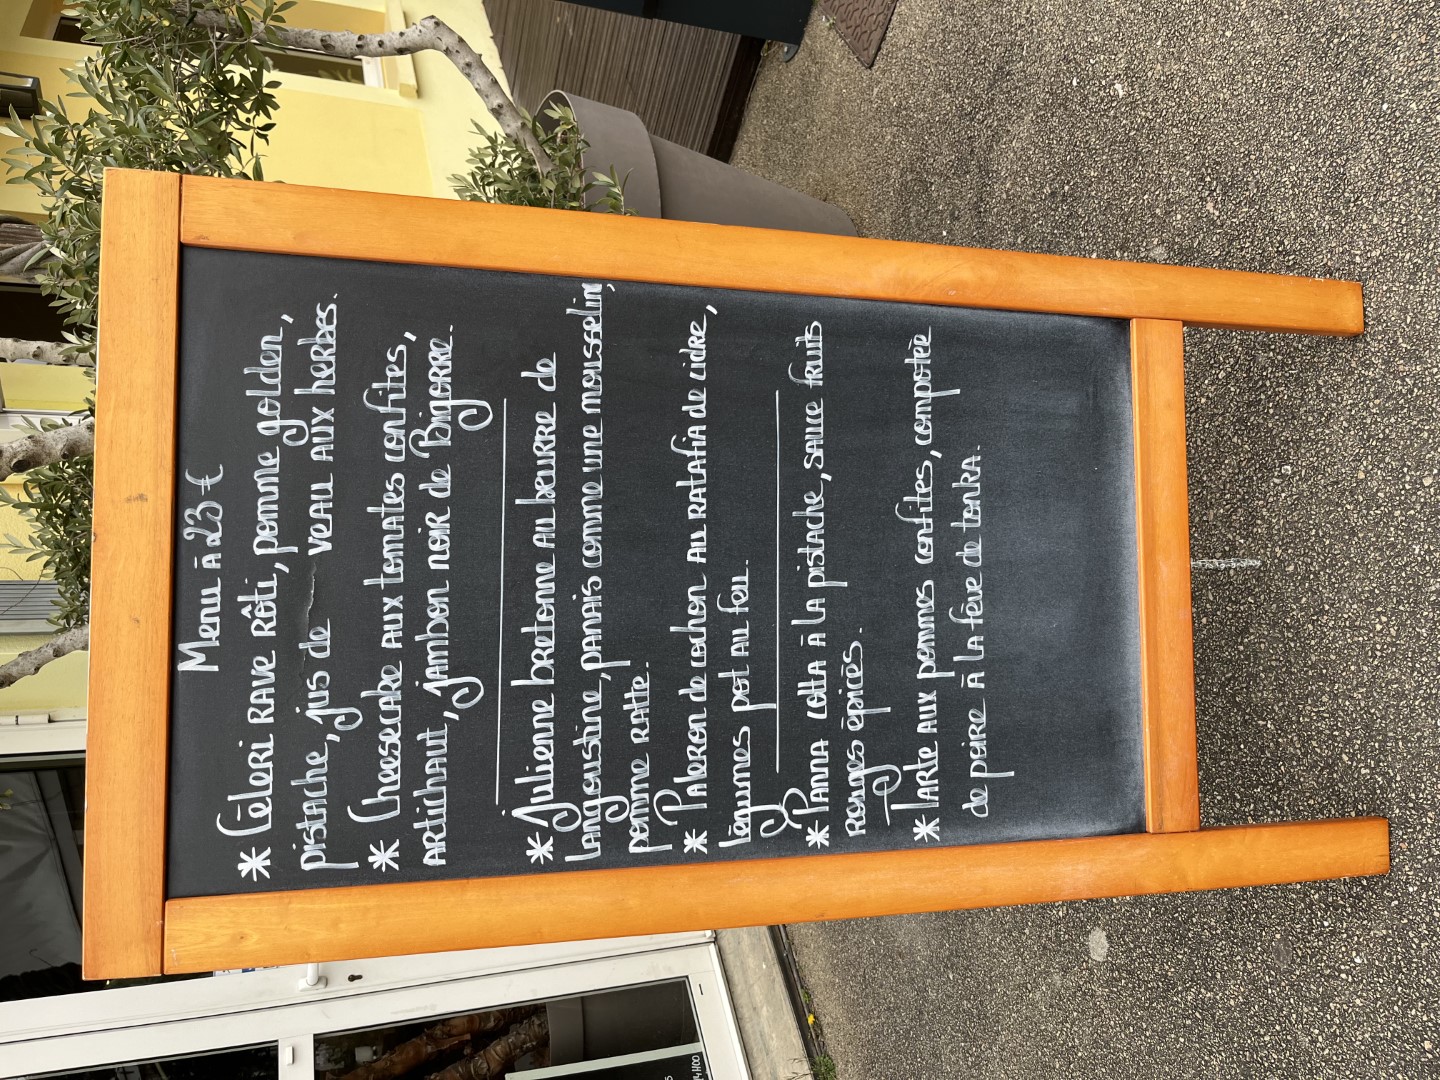 Menu à 23 €
* Céleri rave rôti, pomme golden,
pistache, jus de veau aux herbes.
* Cheesecake aux tomates confites,
artichaut, jambon noir de Bigorre.
* Julienne bretonne au beurre de
langoustine, panais comme une mousselin,
pomme ratte.
* Paleron de cochon au ratafia de cidre,
légumes pot au feu.
* Panna cotta à la pistache, sauce fruits
rouges épicés.
* Tarte aux pommes confites, compotée
de poire à la fève de tonka.